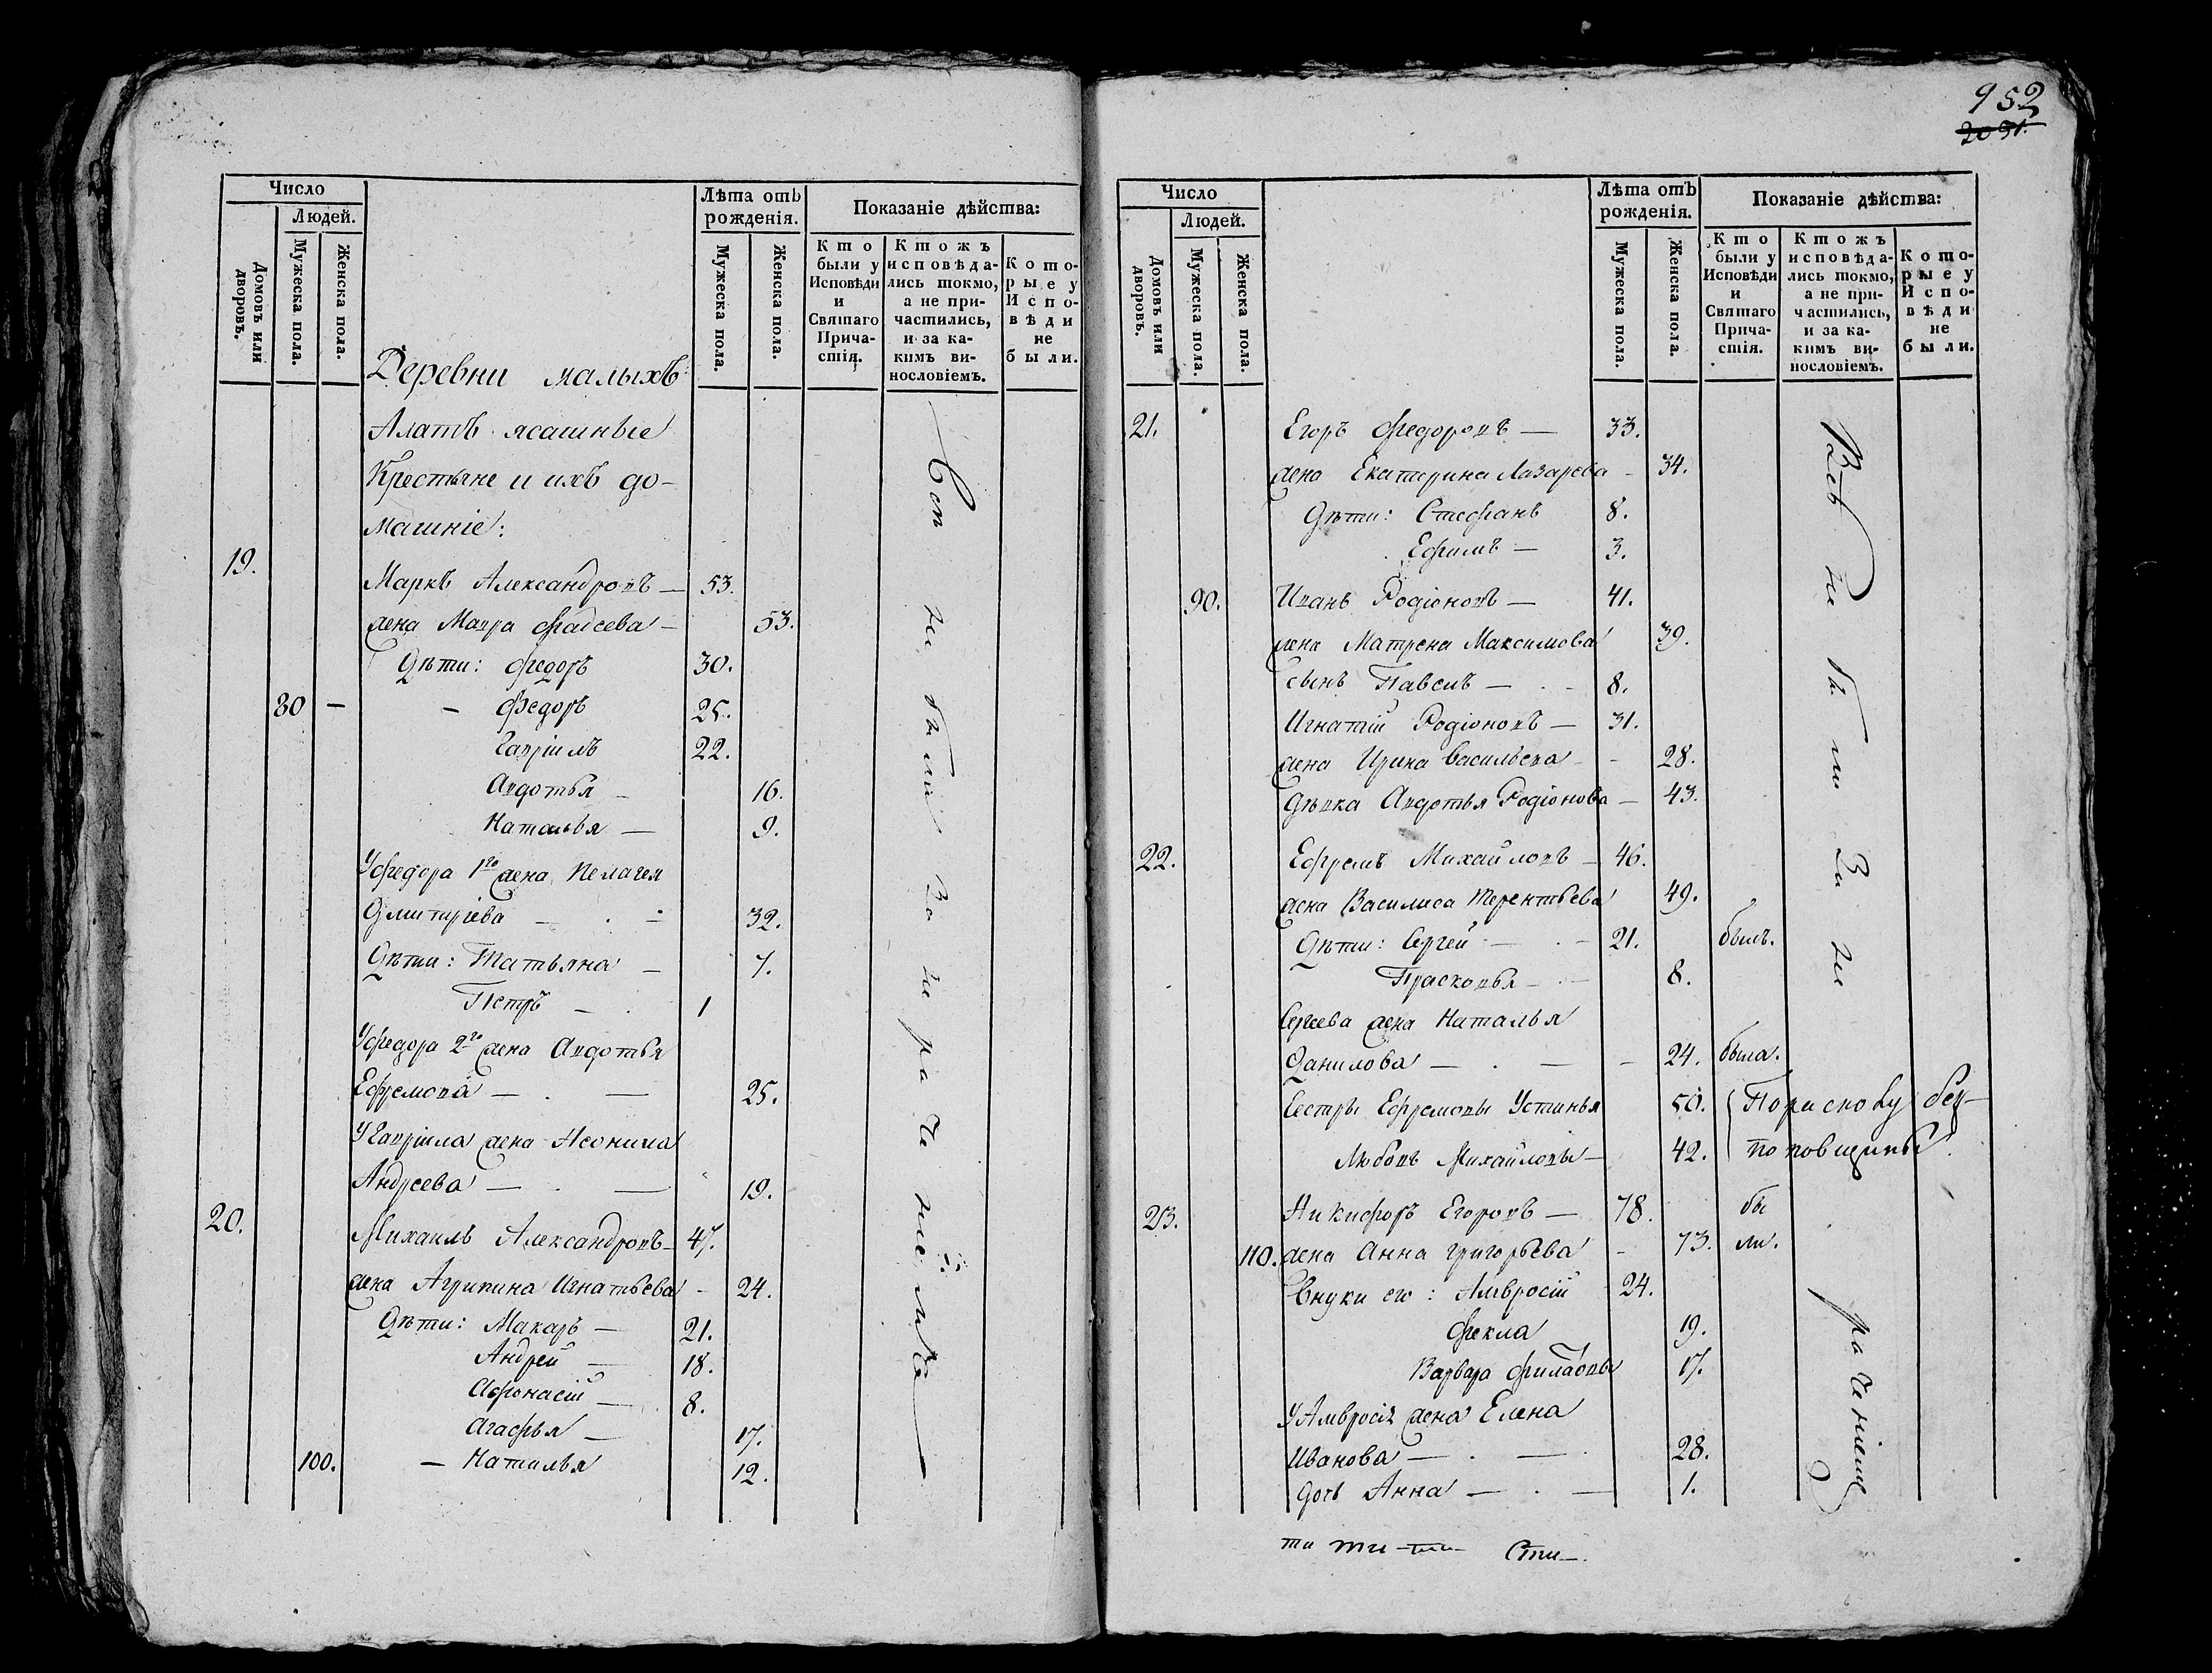 Число
Людей.
Домовъ или дворовъ.
Мужеска пола.
Женска пола.
Лѣта отъ рожденія.
Мужеска пола.
Женска пола.
Показаніе дѣйства:
Кто были у Исповѣди и Святаго Причастія.
Ктожъ исповѣдались токмо, а не причастились, и за какимъ винословіемъ.
Которые у Исповѣди не были.
Деревни малыхъ
Алатъ ясашные
Крестьяне и ихъ до-
машніе:
19.
Маркъ Александровъ — 53.
жена Мавра Фадеева — 53.
Дѣти: Федоръ 30.
80 — — Федоръ 25.
Гавріилъ 22.
Авдотья — 16.
Наталья — 9.
У Федора 1го жена Пелагея
Дмитріева — 32.
Дѣти: Татьяна — 7.
Петръ — 1
У Федора 2го жена Авдотья
Ефремова — 25.
У Гавріила жена Неонила
Андреева — 19.
20. Михаилъ Александровъ — 47.
жена Агрипина Игнатьева — 24.
Дѣти: Макаръ — 21.
Андрей — 18.
Афонасій — 8.
Агафья — 17.
100. — Наталья 12.
Вси не были за нераченіемъ
952
2031.
Число
Людей.
Домовъ или дворовъ.
Мужеска пола.
Женска пола.
Лѣта отъ рожденія.
Мужеска пола.
Женска пола.
Показаніе дѣйства:
Кто были у Исповѣди и Святаго Причастія.
Ктожъ исповѣдались токмо, а не причастились, и за какимъ винословіемъ.
Которые у Исповѣди не были.
21. Егоръ Федоровъ — 33.
жена Екатерина Лазарева — 34.
Дѣти: Стефанъ 8.
Ефимъ — 3.
90. Иванъ Родіоновъ — 41.
жена Матрена Максимова 39.
сынъ Павелъ — 8.
Игнатій Родіоновъ — 31.
жена Ирина Васильева — 28.
Дѣвка Авдотья Родіонова — 43.
22. Ефремъ Михайловъ — 46.
жена Василиса Терентьева 49.
Дѣти: Сергей — 21. былъ.
Прасковья — 8.
Сергеева жена Наталья
Данилова — 24. была.
Сестры Ефремовы Устинья 50. По расколу без-
Любовь Михайловы — 42. поповщины.
23. Никифоръ Егоровъ — 78. бы
110. жена Анна Григорьева — 73. ли.
Внуки его: Амвросій 24.
Фекла 19.
Варвара 17.
У Амвросія жена Елена
Иванова — 28.
дочь Анна — 1.
Всѣ не были за не раченіемъ